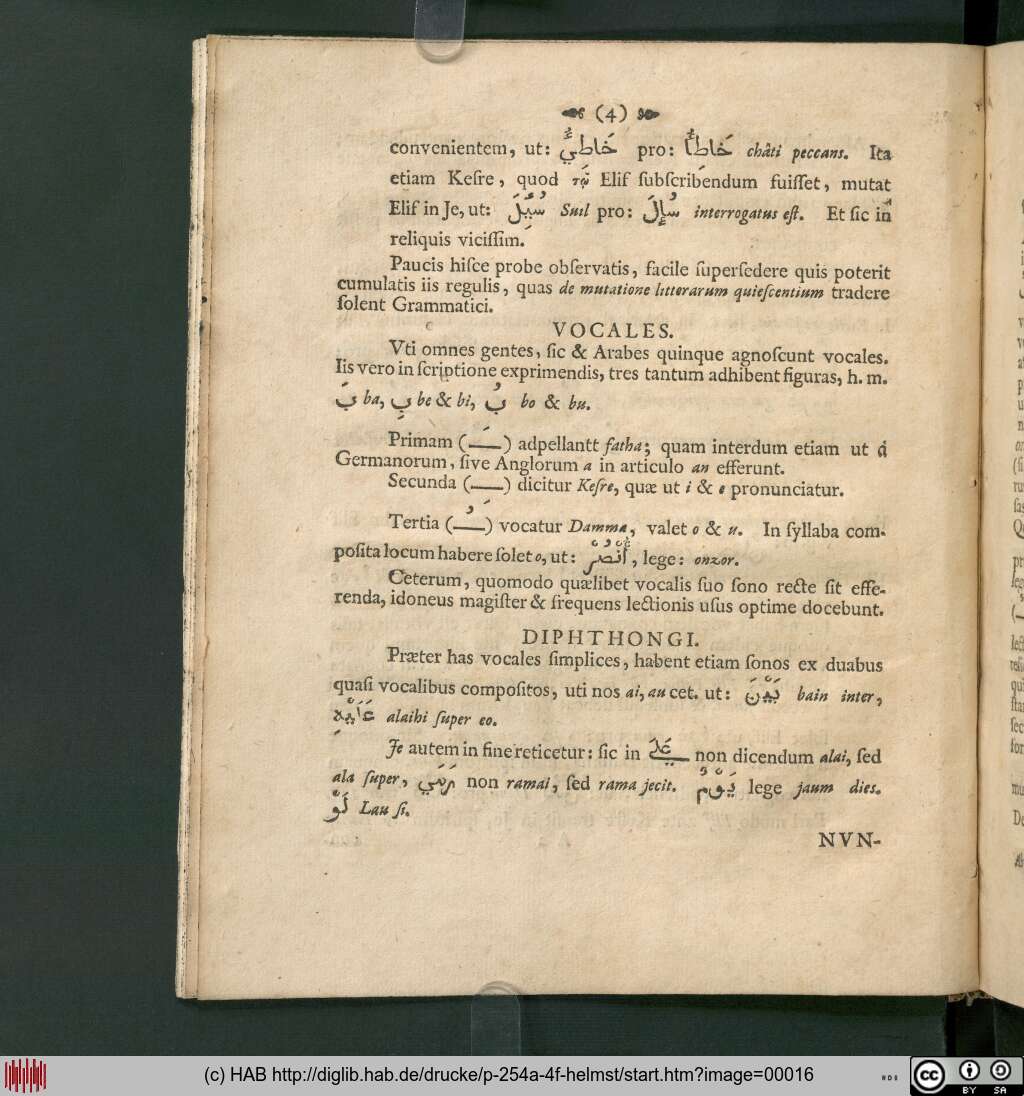 (4)
convenientem, ut: خَاطِيٌ pro: خَاطِأٌ châti peccans. Ita
etiam Keſre, quod τῷ Elif ſubſcribendum fuiſſet, mutat
Elif in Je, ut: سُيِلَ Suil pro: سُإِلَ interrogatus eſt. Et ſic in
reliquis viciſſim.
Paucis hiſce probe obſervatis, facile ſuperſedere quis poterit
cumulatis iis regulis, quas de mutatione litterarum quieſcentium tradere
ſolent Grammatici.
VOCALES.
Vti omnes gentes, ſic & Arabes quinque agnoſcunt vocales.
Iis vero in ſcriptione exprimendis, tres tantum adhibent figuras, h. m.
بَ ba, بِ be & bi, بُ bo & bu.
Primam (َ—) adpellantt fatha; quam interdum etiam ut á
Germanorum, ſive Anglorum a in articulo an efferunt.
Secunda (—ِ) dicitur Keſre, quæ ut i & e pronunciatur.
Tertia (ُ—) vocatur Damma, valet o & u. In ſyllaba com-
poſita locum habere ſolet o, ut: أُنْصُرْ, lege: onzor.
Ceterum, quomodo quælibet vocalis ſuo ſono recte ſit effe-
renda, idoneus magiſter & frequens lectionis uſus optime docebunt.
DIPHTHONGI.
Præter has vocales ſimplices, habent etiam ſonos ex duabus
quaſi vocalibus compoſitos, uti nos ai, au cet. ut: بَيْنَ bain inter,
عَلَيْهِ alaihi ſuper eo.
Je autem in fine reticetur: ſic in عَلَي non dicendum alai, ſed
ala ſuper, رَمَي non ramai, ſed rama jecit. يَوْمٌ lege jaum dies.
لَوْ Lau ſi.
NVN-
(c) HAB http://diglib.hab.de/drucke/p-254a-4f-helmst/start.htm?image=00016
cc BY SA